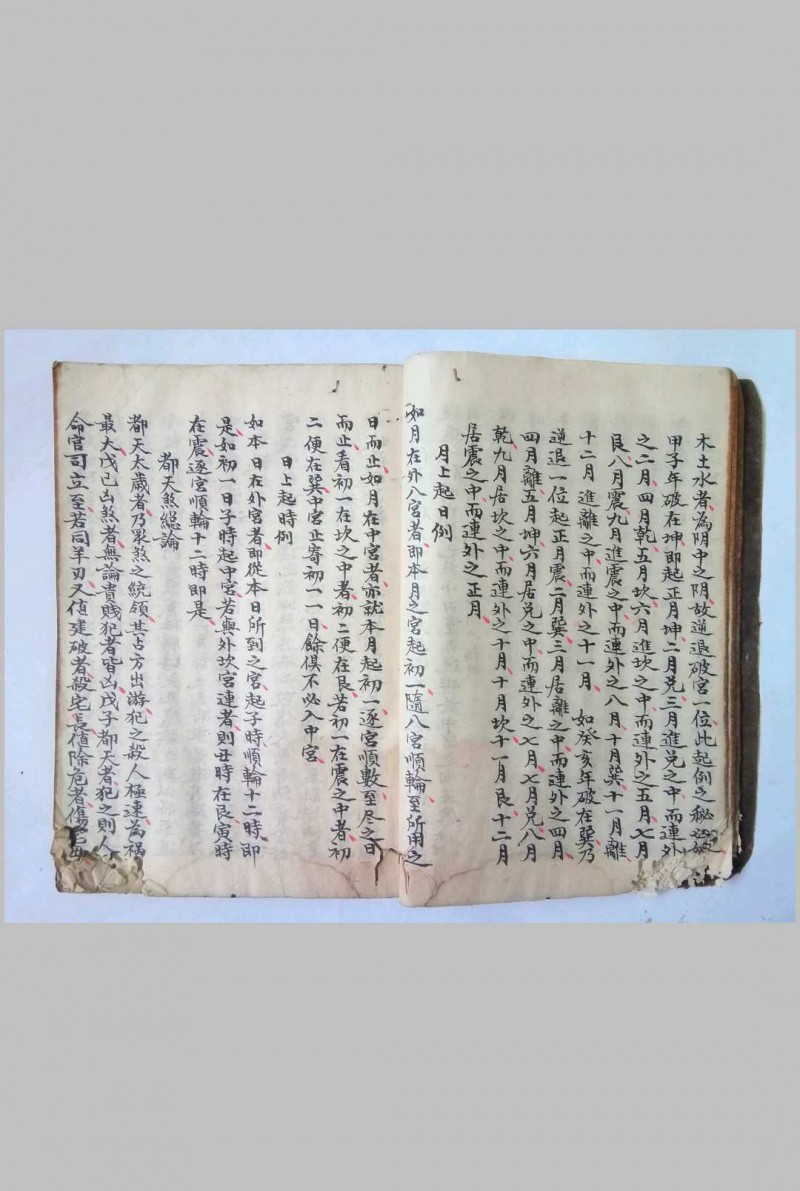 木土水者為阴中之阴故逆退破宮一位此起例之秘
甲子年破在坤即起正月坤二月兑三月進兑之中而連外
之二月四月乾五月坎六月進坎之中而連外之五月七月
艮八月震九月進震之中而連外之八月十月巽十一月離
十二月進離之中而連外之十一月 如癸亥年破在巽乃
逆退一位起正月震二月巽三月居離之中而連外之四月
四月離五月坤六月居兑之中而連外之七月七月兑八月
乾九月居坎之中而連外之十月十月坎十一月艮十二月
居震之中而連外之正月
月上起日例
如月在外八宮者即本月之宮起初一隨八宮順輪至所用之
日而止如月在中宮者亦就本月起初一逐宮順數至尽之日
而止看初一在坎之中者初二便在艮若初一在震之中者初
二便在巽中宮止寄初一一日餘俱不必入中宮
日上起時例
如本日在外宮者即從本日所到之宮起子時順輪十二時即
是如初一日子時起中宮若與外坎宮連者則丑時在艮寅時
在震逐宮順輪十二時即是
都天煞總論
都天太歲者乃眾煞之統領其占方出游犯之殺人極速為禍
最大戊己凶煞者無論貴賤犯者皆凶戊子都天者犯之則人
命官司立至若同羊刃又值建破者殺宅長值除危者傷